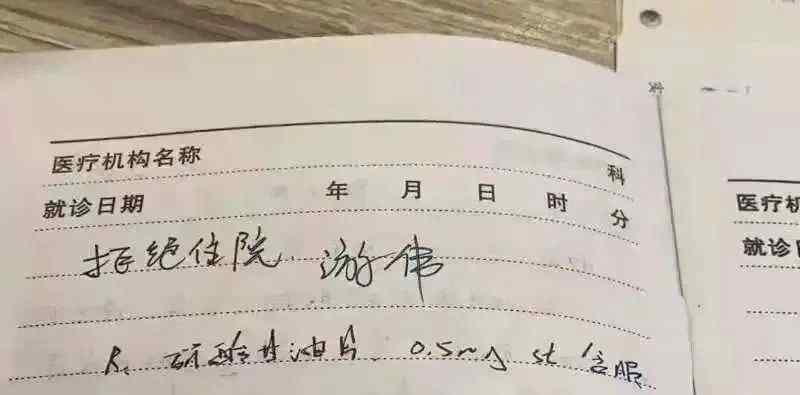 医疗机构名称 科
就诊日期 年 月 日 时 分
拒绝住院 游伟
R. 硝酸甘油片 0.5mg st 含服
医疗机
就诊日